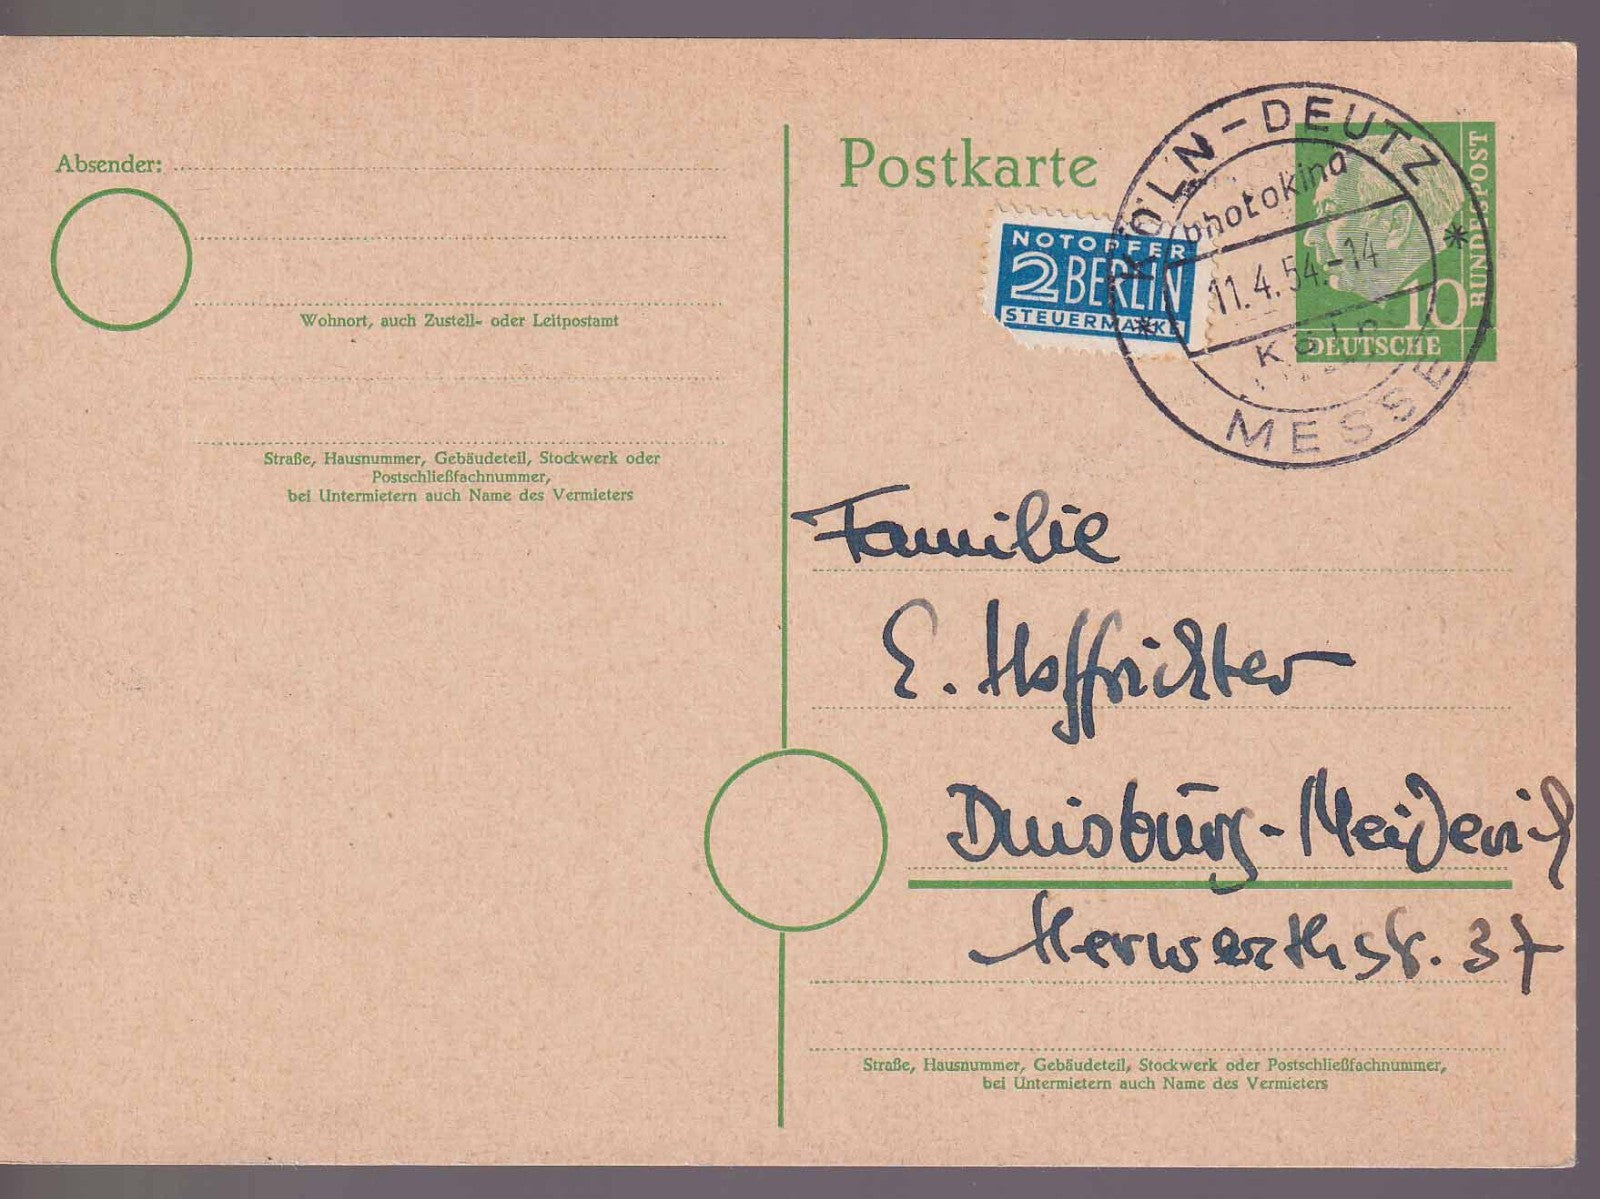 Absender:
Wohnort, auch Zustell- oder Leitpostamt
Straße, Hausnummer, Gebäudeteil, Stockwerk oder
Postschließfachnummer,
bei Untermietern auch Name des Vermieters
Postkarte
NOTOPFER
2 BERLIN
STEUERMARKE
KÖLN-DEUTZ
photokina
11.4.54.-14
Köln
MESSE
BUNDESPOST
10
DEUTSCHE
Familie
E. Hoffrichter
Duisburg-Meiderich
Herwarthstr. 37
Straße, Hausnummer, Gebäudeteil, Stockwerk oder Postschließfachnummer,
bei Untermietern auch Name des Vermieters